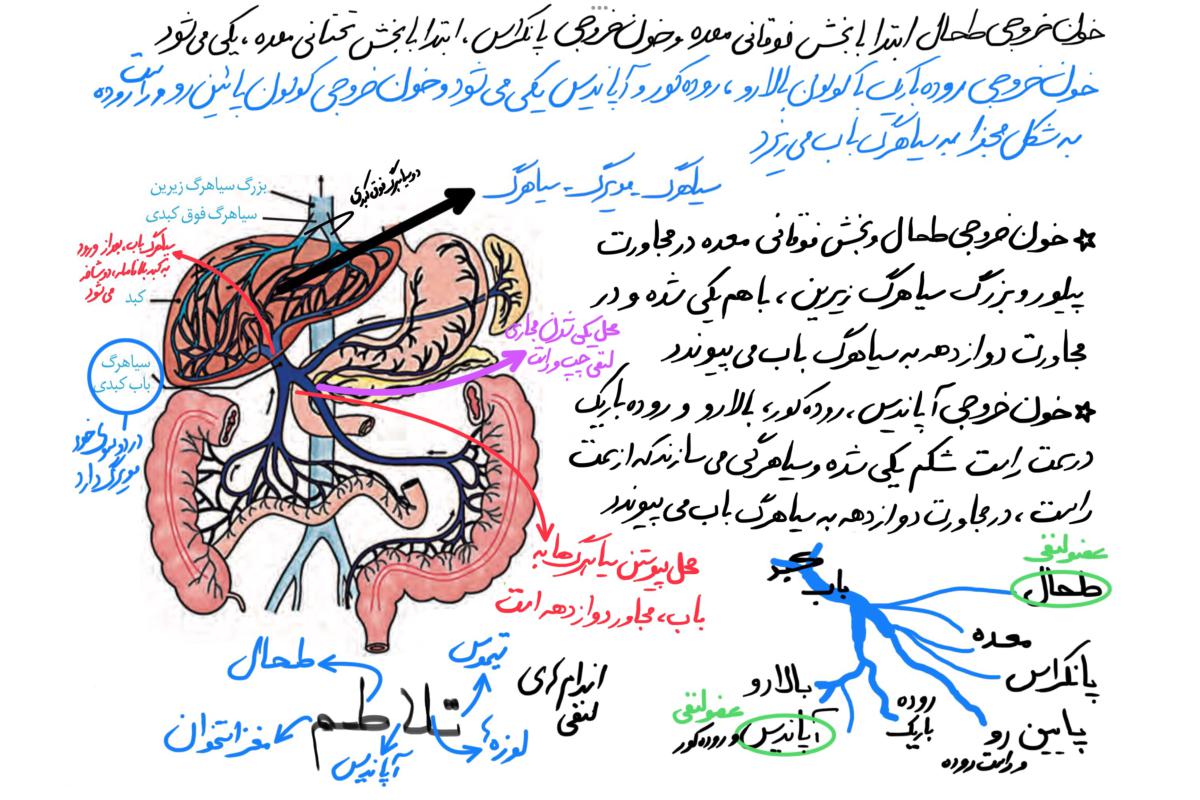 خون خروجی طحال ابتدا با بخش فوقانی معده و خون خروجی پانکراس، ابتدا با بخش تحتانی معده، یکی می‌شود
خون خروجی روده باریک با کولون بالارو، روده کور و آپاندیس یکی می‌شود و خون خروجی کولون پائین رو و راست روده
به شکل مجزا به سیاهرگ باب می‌ریزد
سیاهرگ - مویرگ - سیاهرگ
دو سیاهرگ فوق کبدی
بزرگ سیاهرگ زیرین
سیاهرگ فوق کبدی
سیاهرگ باب، بعد از ورود
به کبد بلافاصله، دو شاخه
می‌شود
کبد
سیاهرگ
باب کبدی
در دو سوی خود
مویرگ دارد
محل یکی شدن مجاری
لنفی چپ و راست
☆ خون خروجی طحال و بخش فوقانی معده در مجاورت
پیلور و بزرگ سیاهرگ زیرین، با هم یکی شده و در
مجاورت دوازدهه به سیاهرگ باب می‌پیوندد
☆ خون خروجی آپاندیس، روده کور، بالارو و روده باریک
در سمت راست شکم یکی شده و سیاهرگی می‌سازند که از سمت
راست، در مجاورت دوازدهه به سیاهرگ باب می‌پیوندد
محل پیوستن سیاهرگ‌ها به
باب، مجاور دوازدهه است
کبد
باب
عضو لنفی
طحال
معده
پانکراس
پایین رو
و راست روده
روده
باریک
بالارو
عضو لنفی
آپاندیس
و روده کور
اندام های
لنفی
تلاطم
تیموس
لوزه‌ها
آپاندیس
طحال
مغز استخوان